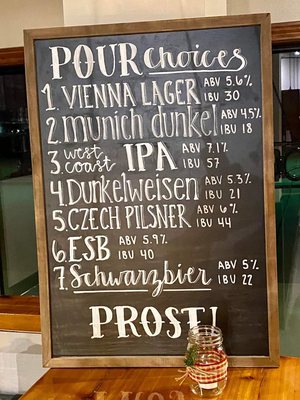 POUR choices
1. VIENNA LAGER ABV 5.6% IBU 30
2. munich dunkel ABV 4.5% IBU 18
3. west coast IPA ABV 7.1% IBU 57
4. Dunkelweisen ABV 5.3% IBU 21
5. CZECH PILSNER ABV 6% IBU 44
6. ESB ABV 5.9% IBU 40
7. Schwarzbier ABV 5% IBU 22
PROST!